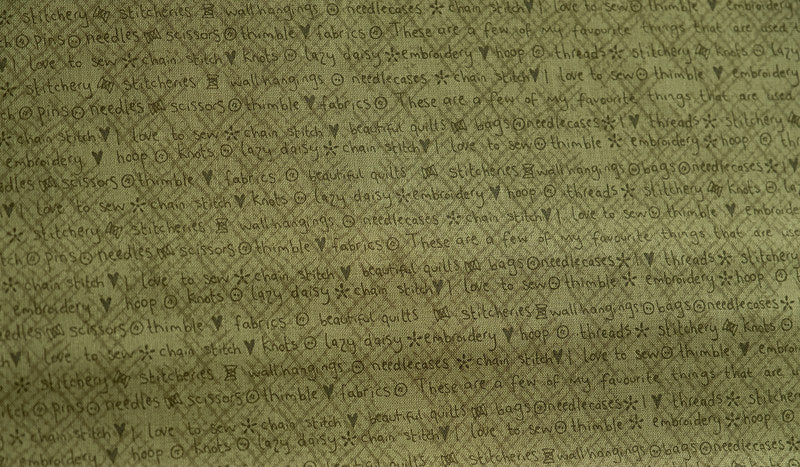 stitchery stitcheries wallhangings needlecases chain stitch I love to sew thimble embroidery
pins needles scissors thimble fabrics These are a few of my favourite things that are used
I love to sew chain stitch knots lazy daisy embroidery hoop threads stitchery knots lazy
stitchery stitcheries wallhangings needlecases chain stitch I love to sew thimble embroidery
pins needles scissors thimble fabrics These are a few of my favourite things that are used
chain stitch I love to sew chain stitch beautiful quilts bags needlecases I threads stitchery
embroidery hoop knots lazy daisy chain stitch I love to sew thimble embroidery hoop
scissors thimble fabrics beautiful quilts stitcheries wallhangings bags needlecases I
I love to sew chain stitch knots lazy daisy embroidery hoop threads stitchery knots
stitchery stitcheries wallhangings needlecases chain stitch I love to sew thimble
pins needles scissors thimble fabrics These are a few of my favourite things that are used
chain stitch I love to sew chain stitch beautiful quilts bags needlecases I threads stitchery
embroidery hoop knots lazy daisy chain stitch I love to sew thimble embroidery hoop
scissors thimble fabrics beautiful quilts stitcheries wallhangings bags needlecases
I love to sew chain stitch knots lazy daisy embroidery hoop threads stitchery knots
stitchery stitcheries wallhangings needlecases chain stitch I love to sew thimble
pins needles scissors thimble fabrics These are a few of my favourite things that are
chain stitch I love to sew chain stitch beautiful quilts bags needlecases I threads
embroidery hoop knots lazy daisy chain stitch I love to sew thimble embroidery hoop
scissors thimble fabrics beautiful quilts stitcheries wallhangings bags needlecases